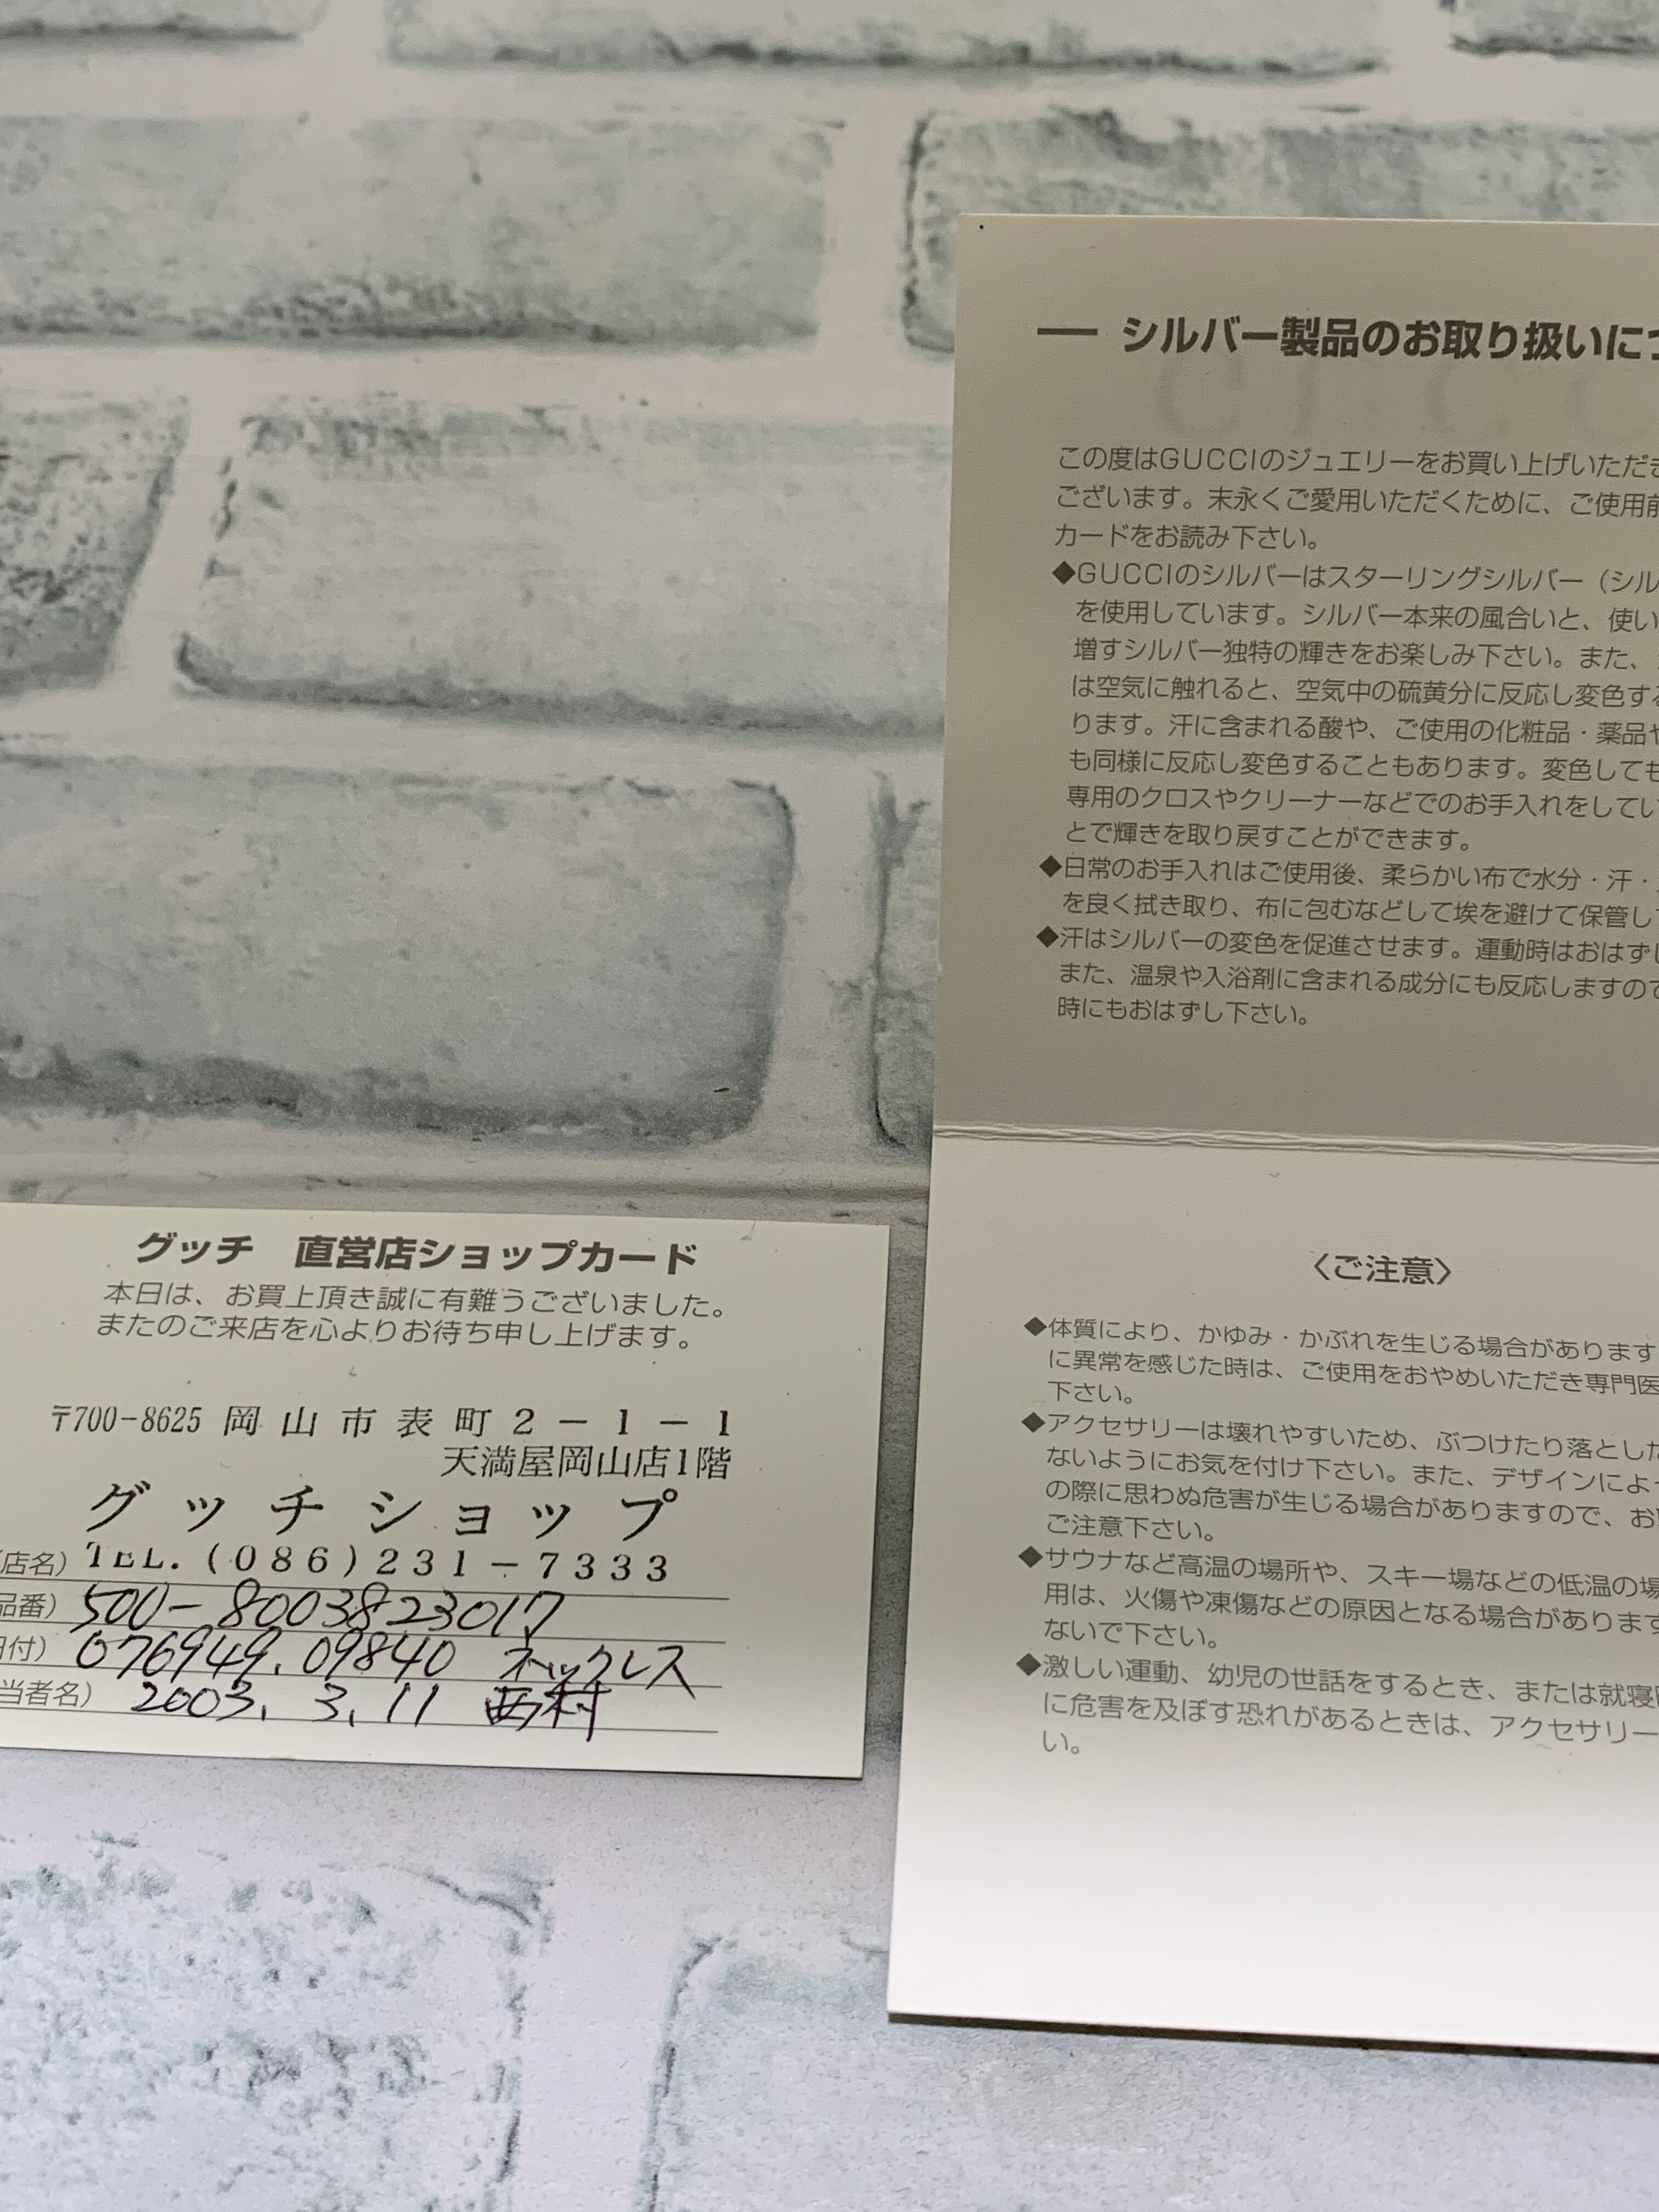 グッチ 直営店ショップカード
本日は、お買上頂き誠に有難うございました。
またのご来店を心よりお待ち申し上げます。
〒700-8625 岡山市表町2-1-1
天満屋岡山店1階
グッチショップ
店名) TEL.(086)231-7333
品番) 500-8003823017
付) 076949.09840 ネックレス
当者名) 2003. 3. 11 西村
― シルバー製品のお取り扱いにつ
この度はGUCCIのジュエリーをお買い上げいただき
ございます。末永くご愛用いただくために、ご使用前
カードをお読み下さい。
◆GUCCIのシルバーはスターリングシルバー（シル
を使用しています。シルバー本来の風合いと、使い
増すシルバー独特の輝きをお楽しみ下さい。また、
は空気に触れると、空気中の硫黄分に反応し変色する
ります。汗に含まれる酸や、ご使用の化粧品・薬品や
も同様に反応し変色することもあります。変色しても
専用のクロスやクリーナーなどでのお手入れをしてい
とで輝きを取り戻すことができます。
◆日常のお手入れはご使用後、柔らかい布で水分・汗・
を良く拭き取り、布に包むなどして埃を避けて保管して
◆汗はシルバーの変色を促進させます。運動時はおはずし
また、温泉や入浴剤に含まれる成分にも反応しますので
時にもおはずし下さい。
〈ご注意〉
◆体質により、かゆみ・かぶれを生じる場合があります
に異常を感じた時は、ご使用をおやめいただき専門医
下さい。
◆アクセサリーは壊れやすいため、ぶつけたり落とした
ないようにお気を付け下さい。また、デザインによっ
の際に思わぬ危害が生じる場合がありますので、お
ご注意下さい。
◆サウナなど高温の場所や、スキー場などの低温の場
用は、火傷や凍傷などの原因となる場合があります
ないで下さい。
◆激しい運動、幼児の世話をするとき、または就寝
に危害を及ぼす恐れがあるときは、アクセサリー
い。